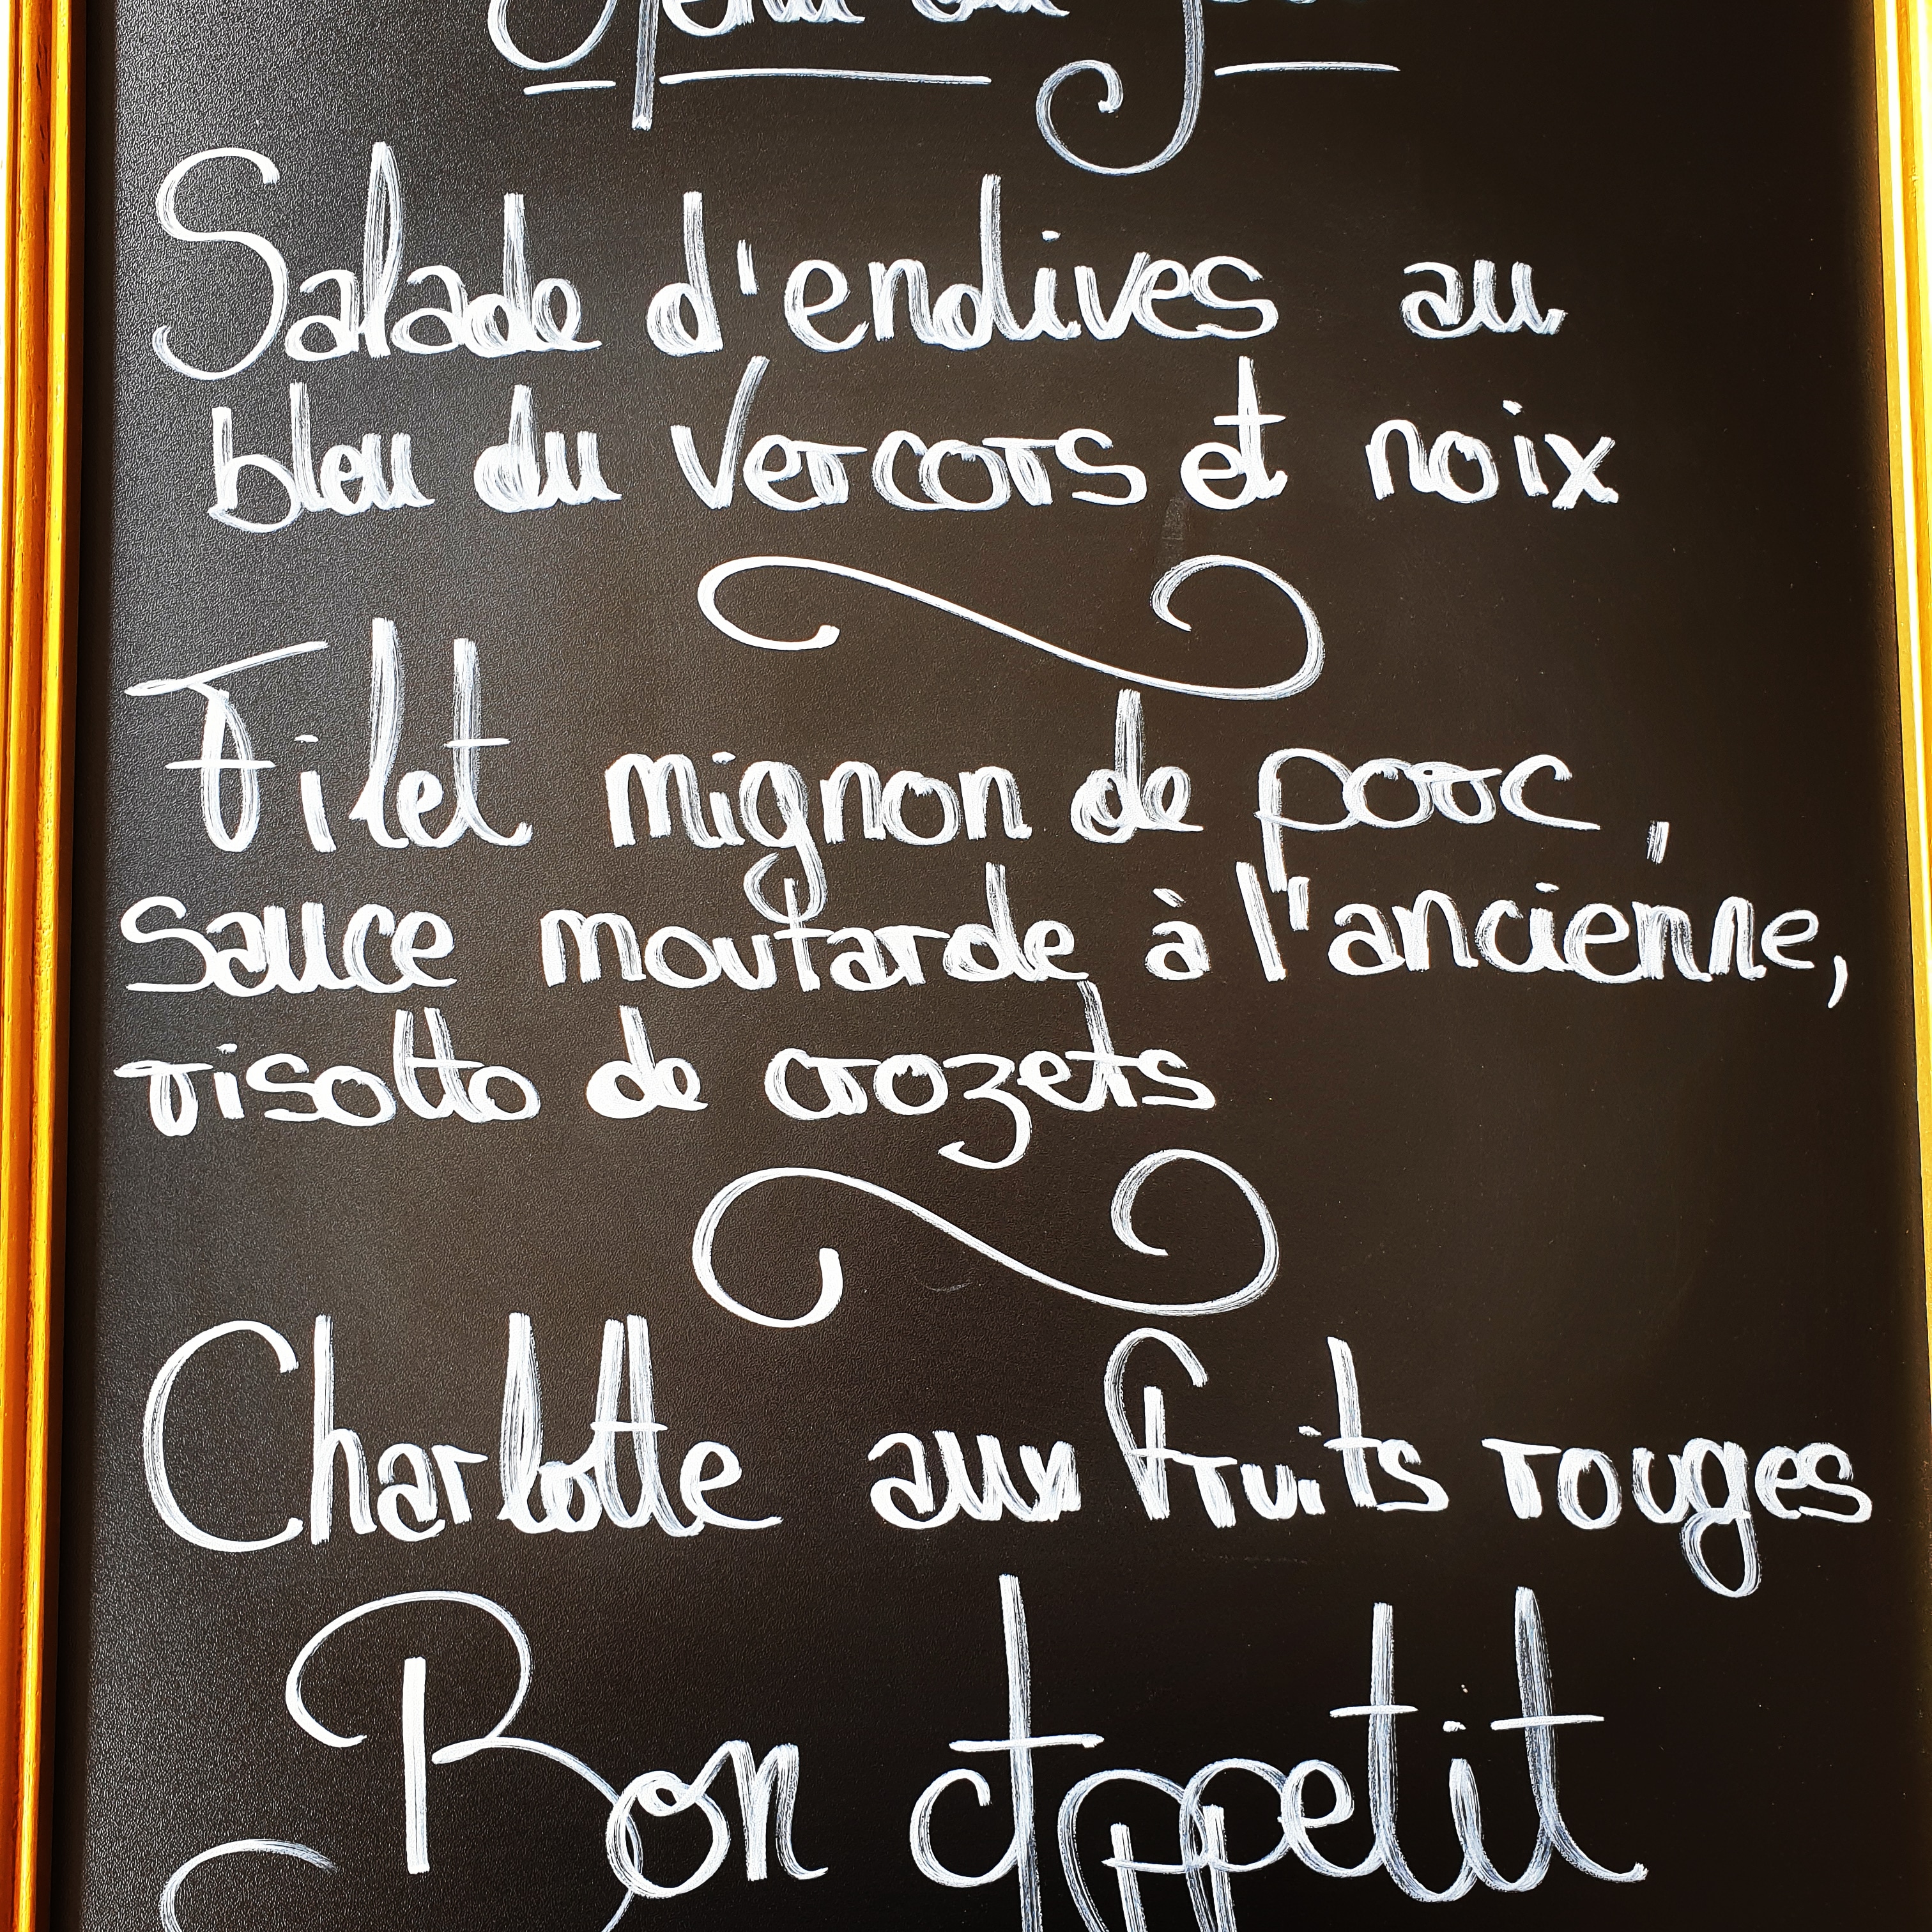 Menu du jour
Salade d'endives au
bleu du Vercors et noix
Filet mignon de porc,
sauce moutarde à l'ancienne,
risotto de crozets
Charlotte aux fruits rouges
Bon Appetit